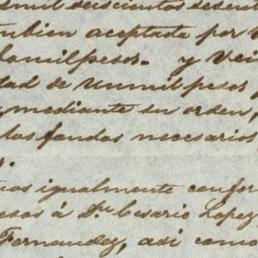 smil seiscientos sesent
mbien aceptada por
lamilpesos. y Vei
dad de Unmil pesos
mediante su orden,
los fondos necesarios
nos igualmente confor
esos á Dn. Cesario Lopez
Fernandez, asi como